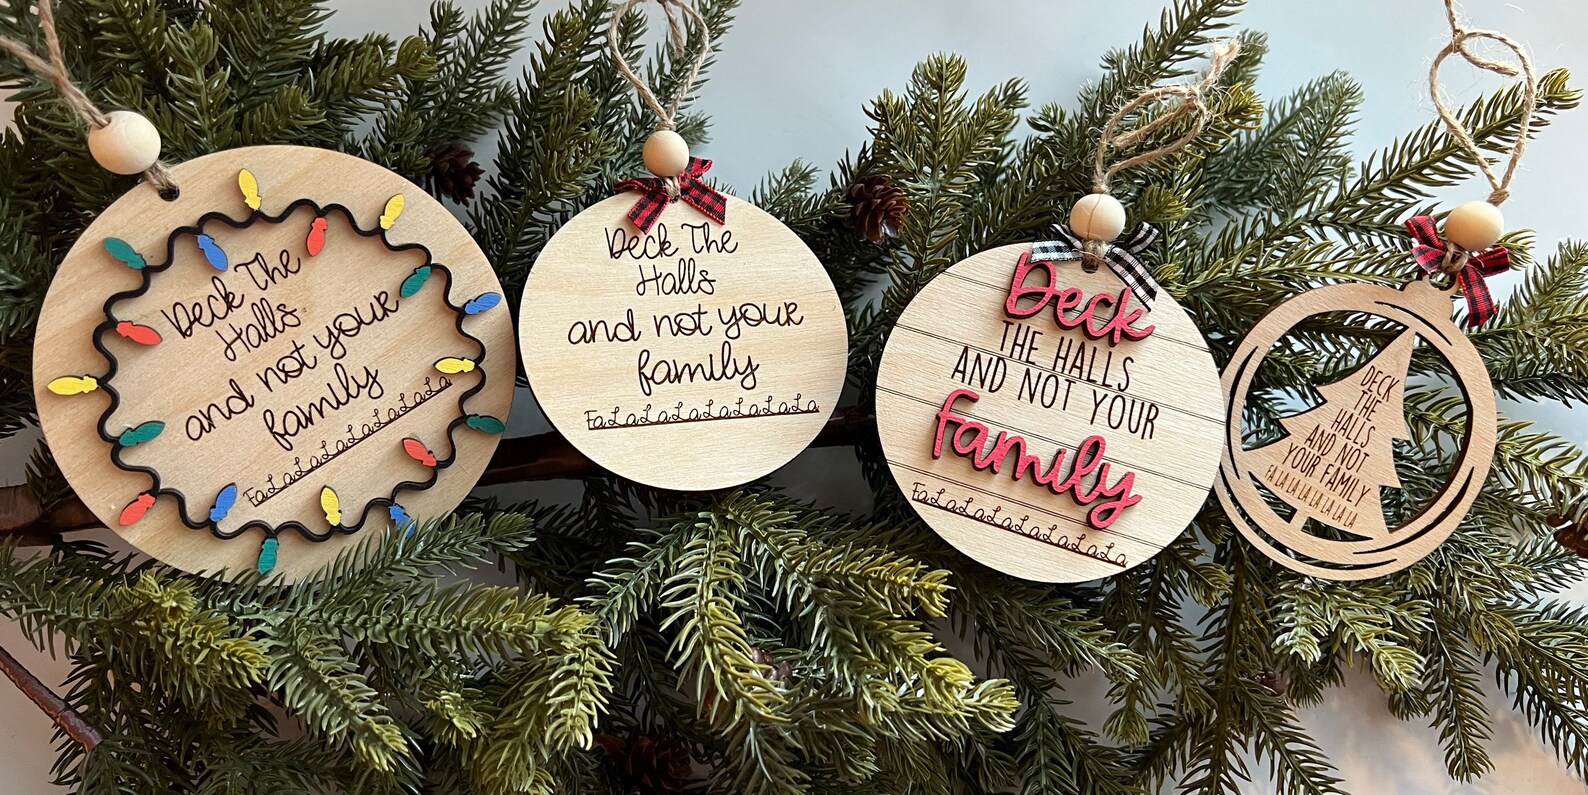 Deck The
Halls
and not your
family
FaLaLaLaLaLaLaLa
Deck The
Halls
and not your
family
FaLaLaLaLaLaLaLa
Deck
THE HALLS
AND NOT YOUR
family
FaLaLaLaLaLaLaLa
DECK
THE
HALLS
AND NOT
YOUR FAMILY
FA LA LA LA LA LA LA LA